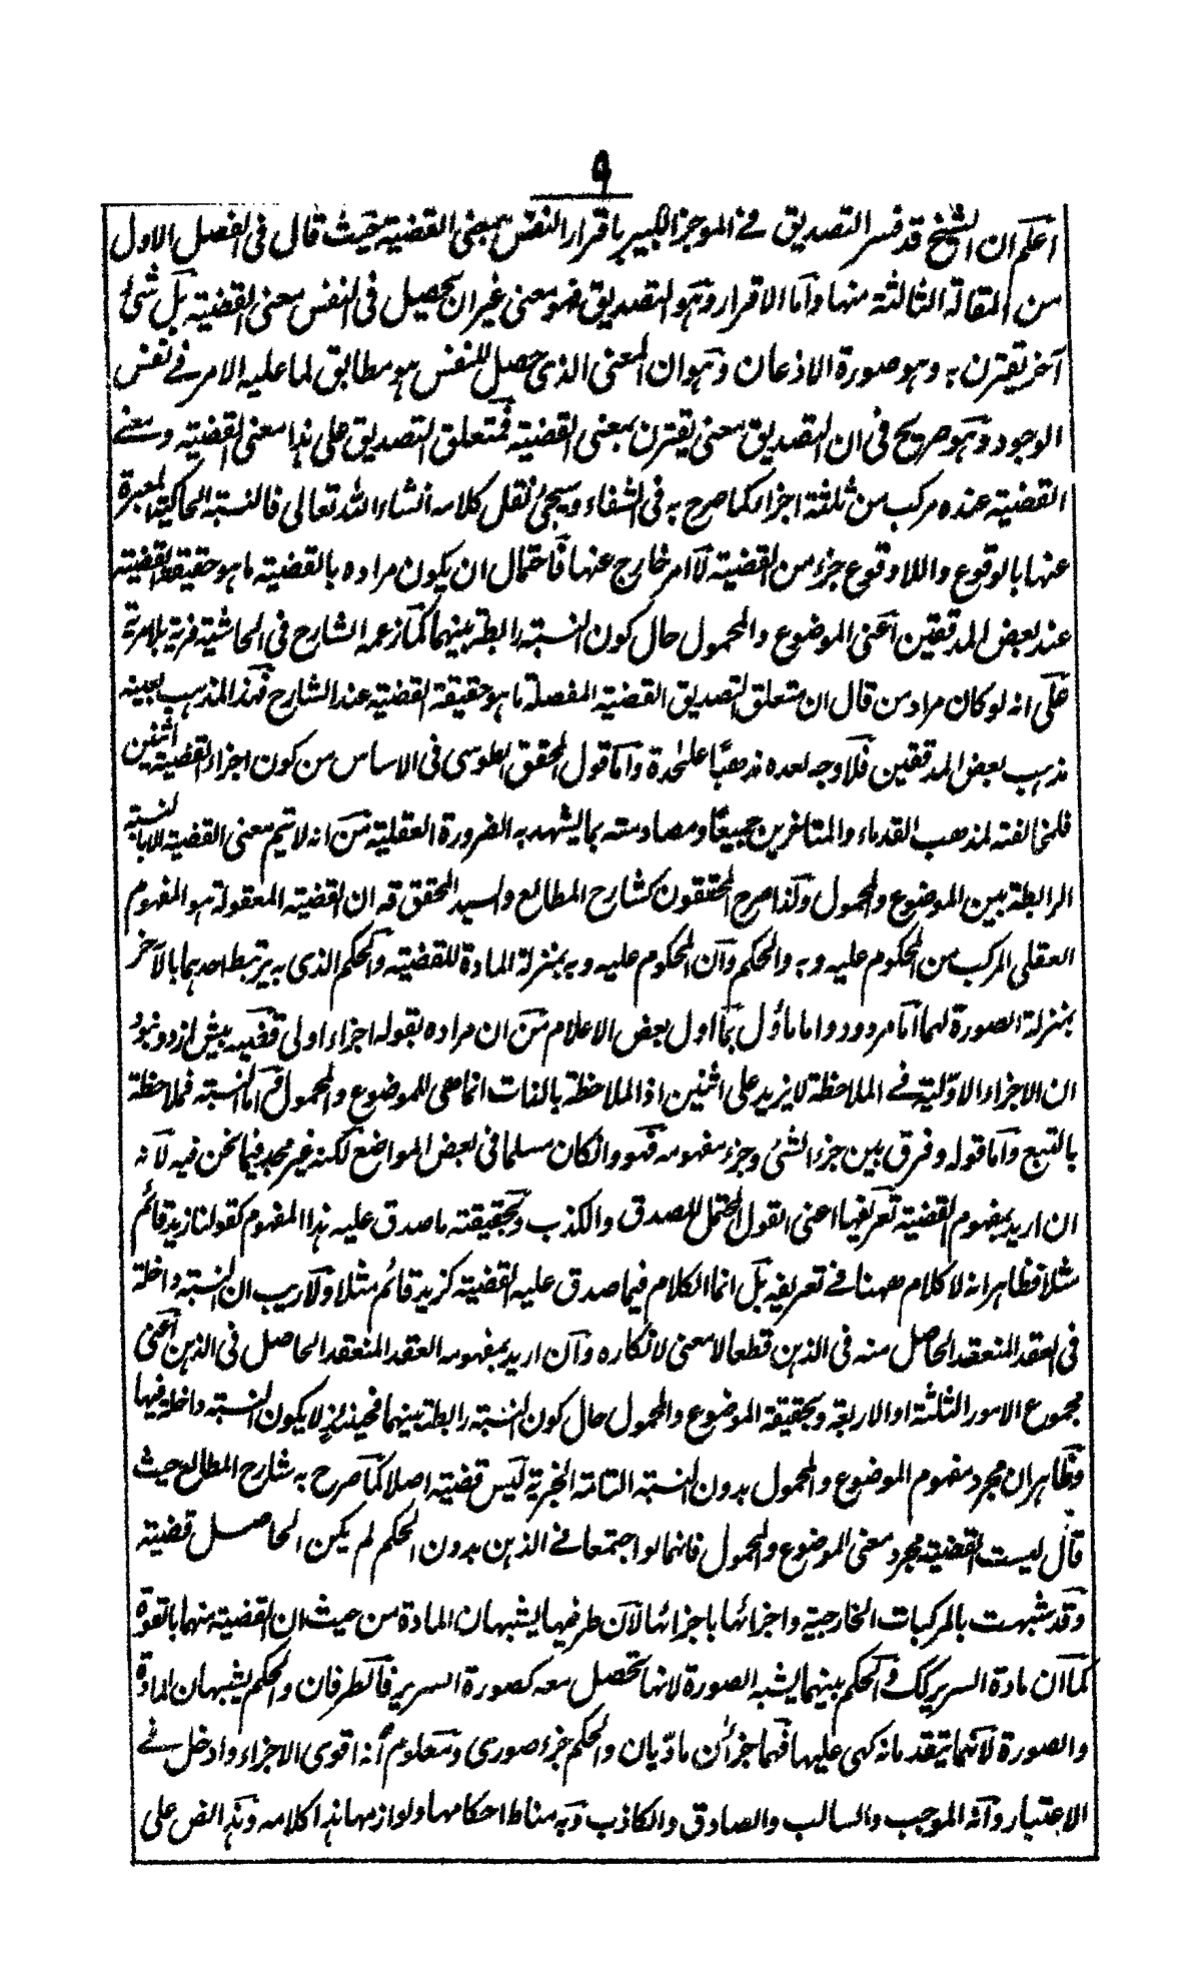 ٩
اعلم ان الشيخ قد فسر التصديق فے الموجز الكبير باقرار النفس بمعنى القضية حيث قال فى الفصل الاول
من المقالة الثالثة منها واما الاقرار وهو التصديق فهو معنى غير ان يحصل فى النفس معنى القضية بل شئ
آخر يقترن به وهو صورة الاذعان وهو ان المعنى الذى حصل للنفس هو مطابق لما عليه الامر فے نفس
الوجود وهو صريح فى ان التصديق معنى يقترن بمعنى القضية فمتعلق التصديق على هذا معنى القضية ومعنے
القضية عنده مركب من ثلثة اجزاء كما صرح به فى الشفاء وسيجئ نقل كلامه انشاء الله تعالى فالنسبة الحاكية المعبرة
عنها بالوقوع واللاوقوع جزء من القضية لا امر خارج عنها فاحتمال ان يكون مراده بالقضية ما هو حقيقة القضية
عند بعض المدققين اعنى الموضوع والمحمول حال كون النسبة رابطة بينهما كما زعمه الشارح فى الحاشية فرية بلا مرية
على انه لو كان مراد من قال ان متعلق التصديق القضية المفصلة ما هو حقيقة القضية عند الشارح فهذا المذهب بعينه
مذهب بعض المدققين فلا وجه لعده مذهبًا علىحدة واما قول المحقق الطوسى فى الاساس من كون اجزاء القضية اثنين
فلمخالفته لمذهب القدماء والمتاخرين جميعًا ومصادمته بما يشهد به الضرورة العقلية من انه لا تتم معنى القضية الا بالنسبة
الرابطة بين الموضوع والمحمول وكذا صرح المحققون كشارح المطالع والسيد المحقق قه ان القضية المعقولة هو المفهوم
العقلى المركب من المحكوم عليه وبه والحكم وان المحكوم عليه وبه بمنزلة المادة للقضية والحكم الذى به يرتبط احدهما بالآخر
بمنزلة الصورة لهما اما مردود واما ماؤل بما اول بعض الاعلام من ان مراده بقوله اجزاء اولى قضيه بيش از دو نبود
ان الاجزاء الاولية فے الملاحظة لا يزيد على اثنين اذ الملاحظة بالذات انما هى للموضوع والمحمول اما النسبة فملاحظة
بالتبع واما قوله وفرق بين جزء الشئ وجزء مفهومه فهو وان كان مسلما فى بعض المواضع لكنه غير مجد فيما نحن فيه لانه
ان اريد بمفهوم القضية تعريفها اعنى القول المحتمل للصدق والكذب وبحقيقته ما صدق عليه هذا المفهوم كقولنا زيد قائم
مثلا فظاهر انه لا كلام ههنا فے تعريفه بل انما الكلام فيما صدق عليه القضية كزيد قائم مثلا ولا ريب ان النسبة داخلة
فى العقد المنعقد الحاصل منه فى الذهن قطعا لا معنى لانكاره وان اريد بمفهومه العقد المنعقد الحاصل فى الذهن اعنى
مجموع الامور الثلثة او الاربعة وبحقيقة الموضوع والمحمول حال كون النسبة رابطة بينهما فحينئذ لا يكون النسبة داخلة فيها
وظاهر ان مجرد مفهوم الموضوع والمحمول بدون النسبة التامة الخبرية ليس قضية اصلا كما صرح به شارح المطالع حيث
قال ليست القضية مجرد معنى الموضوع والمحمول فانهما لو اجتمعا فے الذهن بدون الحكم لم يكن الحاصل قضية
وقد شبهت بالمركبات الخارجية واجزائها باجزائها لان طرفيها يشبهان المادة من حيث ان القضية منهما بالقوة
كما ان مادة السرير كك والحكم بينهما يشبه الصورة لانها تحصل معه كصورة السرير فالطرفان والحكم يشبهان المادة
والصورة لا انهما يتقدمانه كهى عليها فهما جزآن ماديان والحكم جزء صورى ومعلوم انه اقوى الاجزاء وادخل فے
الاعتبار وانه الموجب والسالب والصادق والكاذب وبه مناط احكامها ولوازمها هذا كلامه وهذا نص على